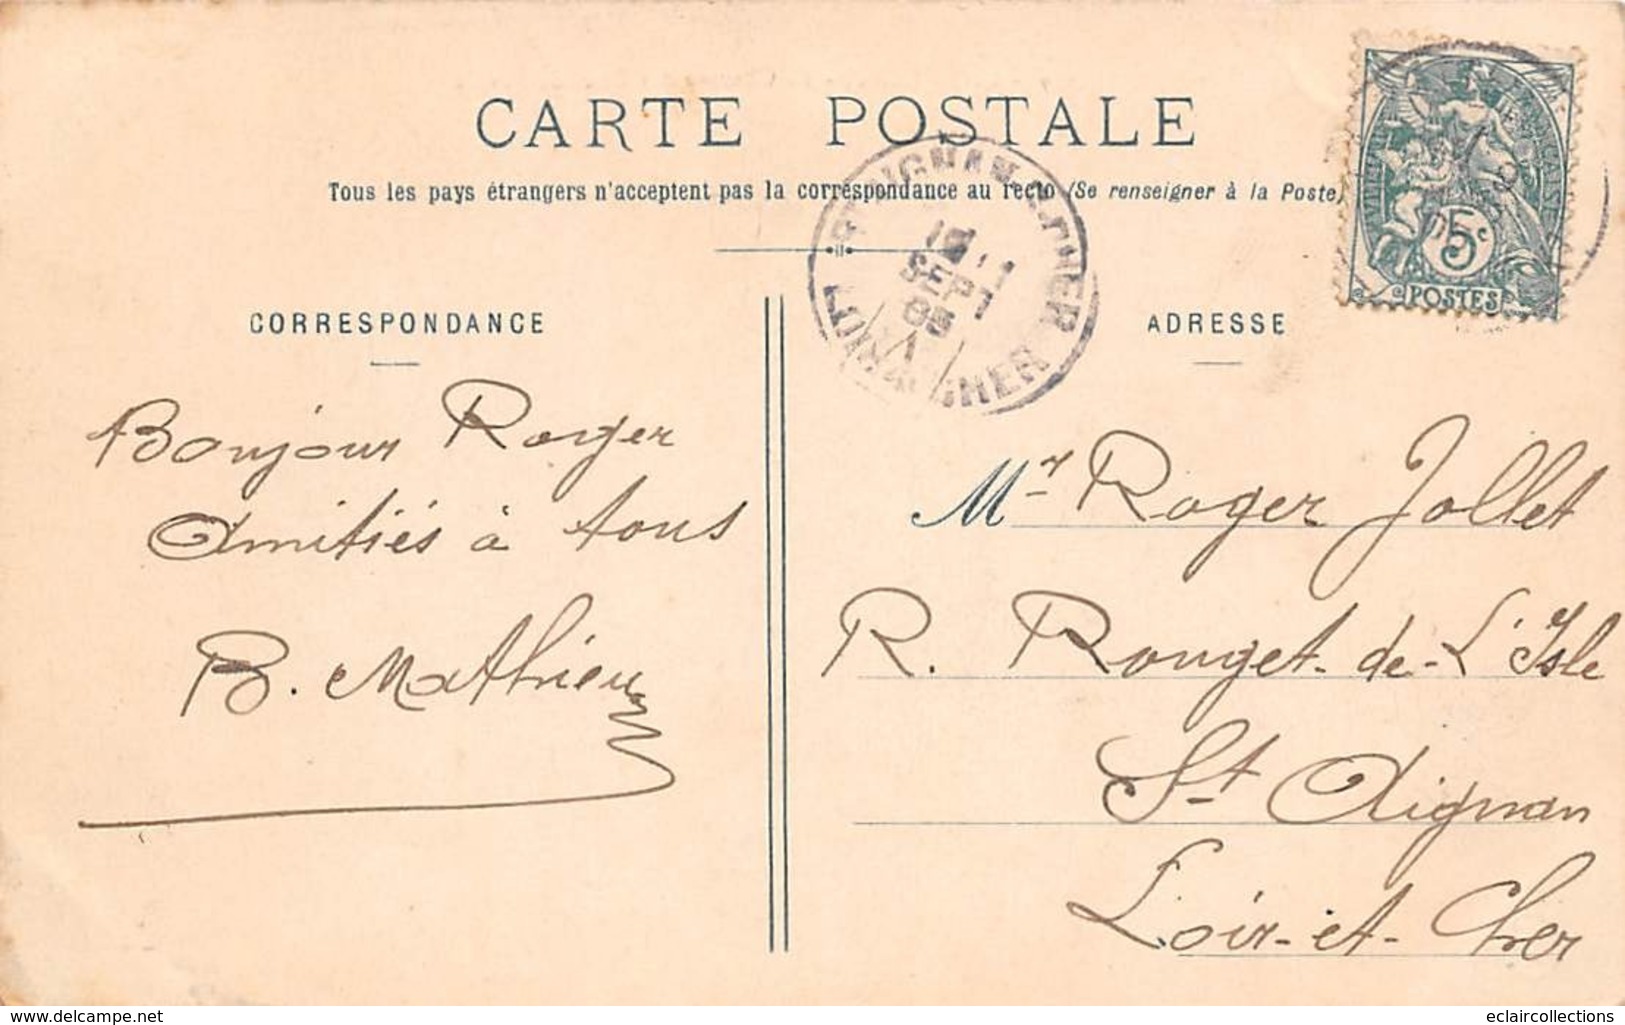 CARTE POSTALE
Tous les pays étrangers n'acceptent pas la correspondance au recto (Se renseigner à la Poste)
5c
POSTES
SEPT
05
CORRESPONDANCE
ADRESSE
Bonjour Roger
Amitiés à tous
B. Mathieu
Mr Roger Jollet
R. Rouget-de-L'Isle
St Aignan
Loir-et-Cher
www.delcampe.net
eclaircollections